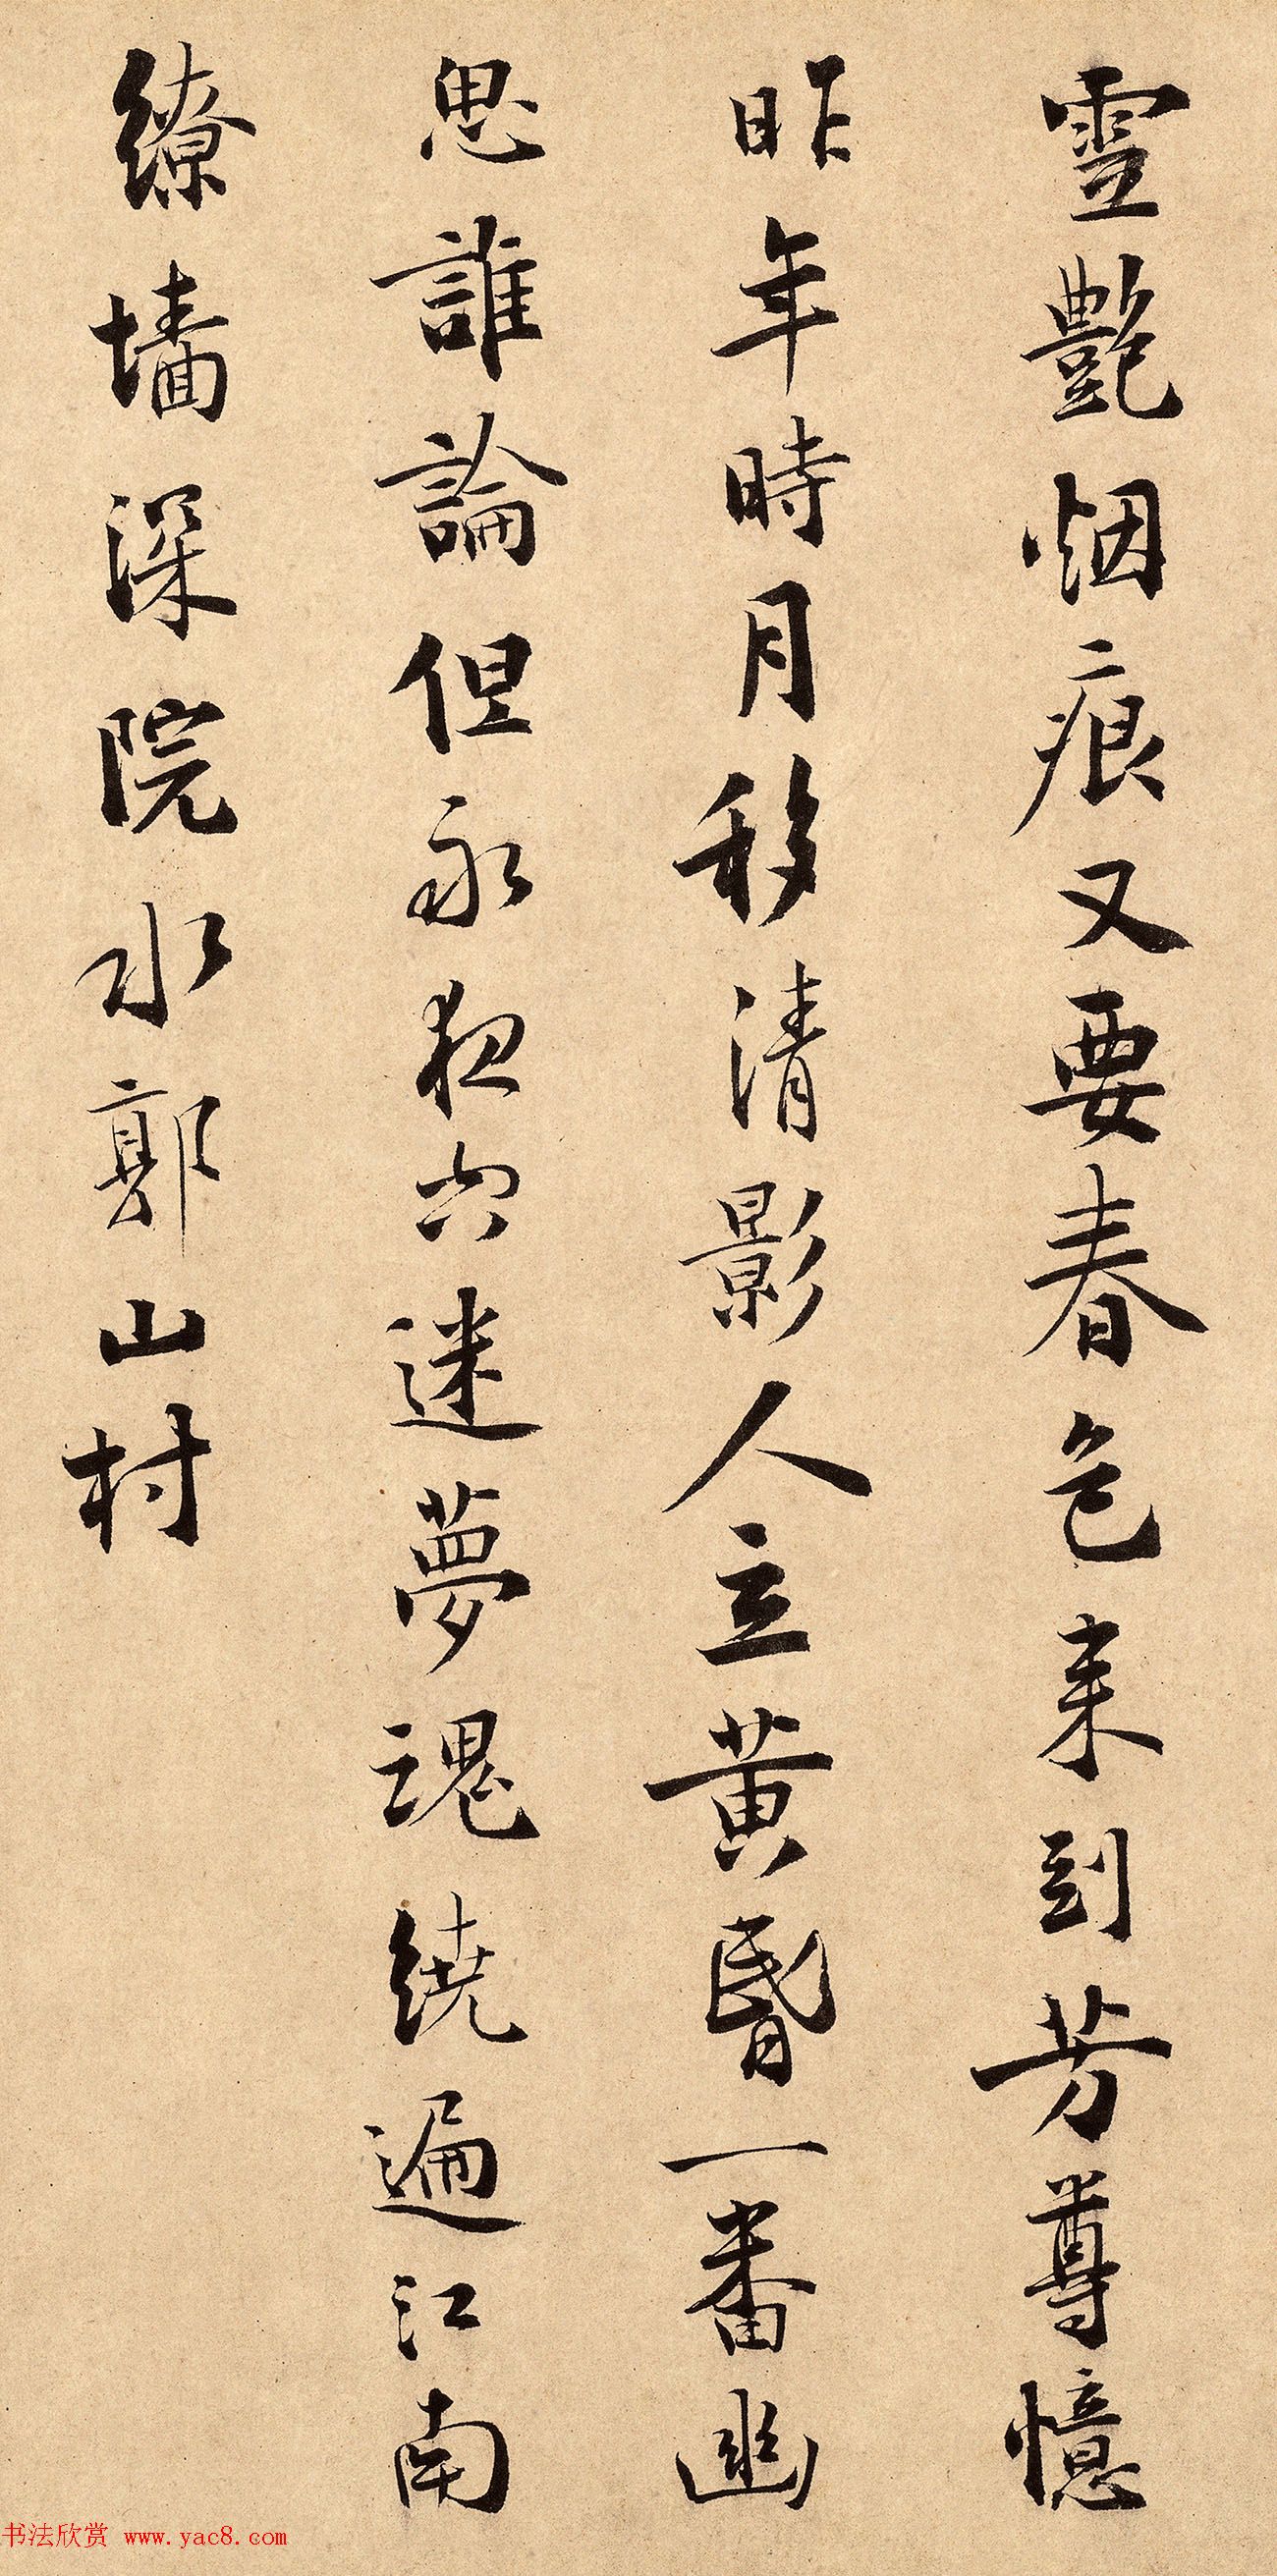 雪艷烟痕又要春色来到芳尊憶
昨年時月移清影人立黄昬一番幽
思誰論但永夜空迷夢魂繞遍江南
繚墻深院水郭山村
书法欣赏 www.yac8.com